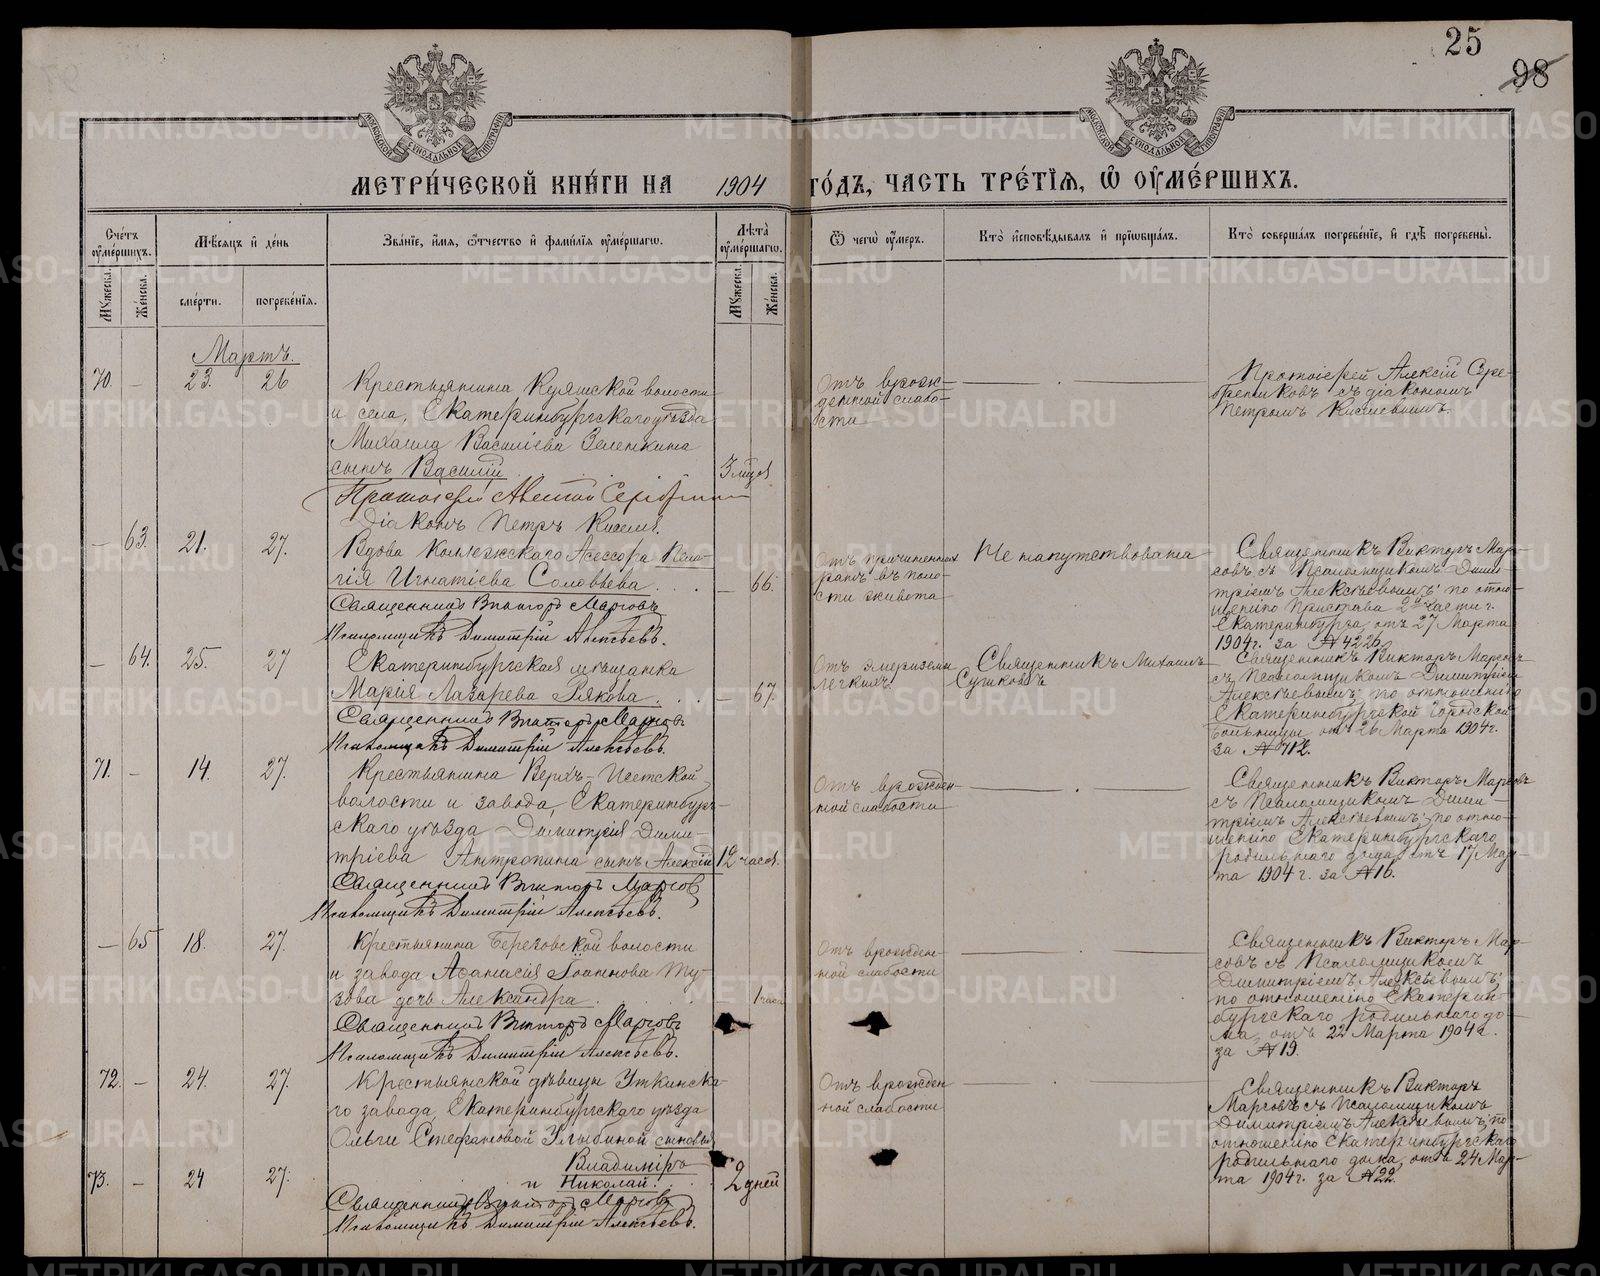 25
98
МЕТРИ́ЧЕСКОЙ КНИ́ГИ НА 1904 ГО́ДЪ, ЧАСТЬ ТРЕ́ТІѦ, Ѡ ОУ҆МЕ́РШИХЪ.
Сче́тъ оу҆ме́ршихъ.
Мѣ́сяцъ и҆ де́нь
Зва́нїе, и҆́мя, ѻ҆́тчество и҆ фами́лїя оу҆ме́ршагѡ.
Лѣ́та оу҆ме́ршагѡ.
Ѿ чегѡ̀ оу҆́меръ.
Кто̀ и҆сповѣ́дывалъ и҆ прїѡбща́лъ.
Кто̀ соверша́лъ погребе́нїе, и҆ гдѣ̀ погребены̀.
Мꙋ́жеска.
Же́нска.
сме́рти.
погребе́нїя.
Мꙋ́жеска.
Же́нска.
Мартъ.
70. — 23. 26
Крестьянина Куяшской волости
и села, Екатеринбургскаго уѣзда
Михаила Васильева Зеленкина
сынъ Василій
3 мѣс.
Протоіерей Алексій
Діаконъ Петръ
Отъ врож-
денной слабо-
сти
Протоіерей Алексій Сере-
бренниковъ съ діакономъ
Петромъ
— 63. 21. 27.
Вдова Коллежскаго Ассесора Пела-
гія Игнатіева Соловьева
— 66.
Священникъ Викторъ Марсовъ
Псаломщикъ Димитрій Алексѣевъ.
Отъ причиненныхъ
ранъ въ поло-
сти живота
Не напутствована
Священникъ Викторъ Мар-
совъ съ Псаломщикомъ Дими-
тріемъ Алексѣевымъ; по отно-
шенію Пристава 2й части г.
Екатеринбурга, отъ 27 Марта
1904 г. за № 4226.
— 64. 25. 27
Екатеринбургская мѣщанка
Марія Лазарева
— 67.
Священникъ Викторъ Марсовъ
Псаломщикъ Димитрій Алексѣевъ.
Отъ эмфиземы
легкихъ.
Священникъ Михаилъ
Сушковъ
Священникъ Викторъ Марсовъ
съ Псаломщикомъ Димитріемъ
Алексѣевымъ; по отношенію
Екатеринбургской Городской
больницы отъ 26 Марта 1904 г.
за № 712.
71. — 14. 27.
Крестьянина Верхъ-Исетской
волости и завода, Екатеринбург-
скаго уѣзда Димитрія Дими-
тріева Антропина сынъ Алексій
12 часов.
Священникъ Викторъ Марсовъ
Псаломщикъ Димитрій Алексѣевъ.
Отъ врожден-
ной слабости
Священникъ Викторъ Марсовъ
съ Псаломщикомъ Дими-
тріемъ Алексѣевымъ; по отно-
шенію Екатеринбургскаго
родильнаго дома, отъ 17 Мар-
та 1904 г. за № 16.
— 65 18. 27.
Крестьянина Березовской волости
и завода Аѳанасія Іоаннова Ту-
зова дочь Александра
— 1 часа
Священникъ Викторъ Марсовъ
Псаломщикъ Димитрій Алексѣевъ.
Отъ врожден-
ной слабости
Священникъ Викторъ Мар-
совъ съ Псаломщикомъ
Димитріемъ Алексѣевымъ;
по отношенію Екатерин-
бургскаго родильнаго до-
ма, отъ 22 Марта 1904 г.
за № 19.
72. — 24. 27.
Крестьянской дѣвицы Уткинска-
го завода, Екатеринбургскаго уѣзда
Ольги Стефановой Улыбиной сыновья
Владиміръ
73. — 24 27.
и Николай.
2 дней
Священникъ Викторъ Марсовъ
Псаломщикъ Димитрій Алексѣевъ.
Отъ врожден-
ной слабости
Священникъ Викторъ
Марсовъ съ Псаломщикомъ
Димитріемъ Алексѣевымъ; по
отношенію Екатеринбургскаго
родильнаго дома, отъ 24 Мар-
та 1904 г. за № 22.
METRIKI.GASO-URAL.RU